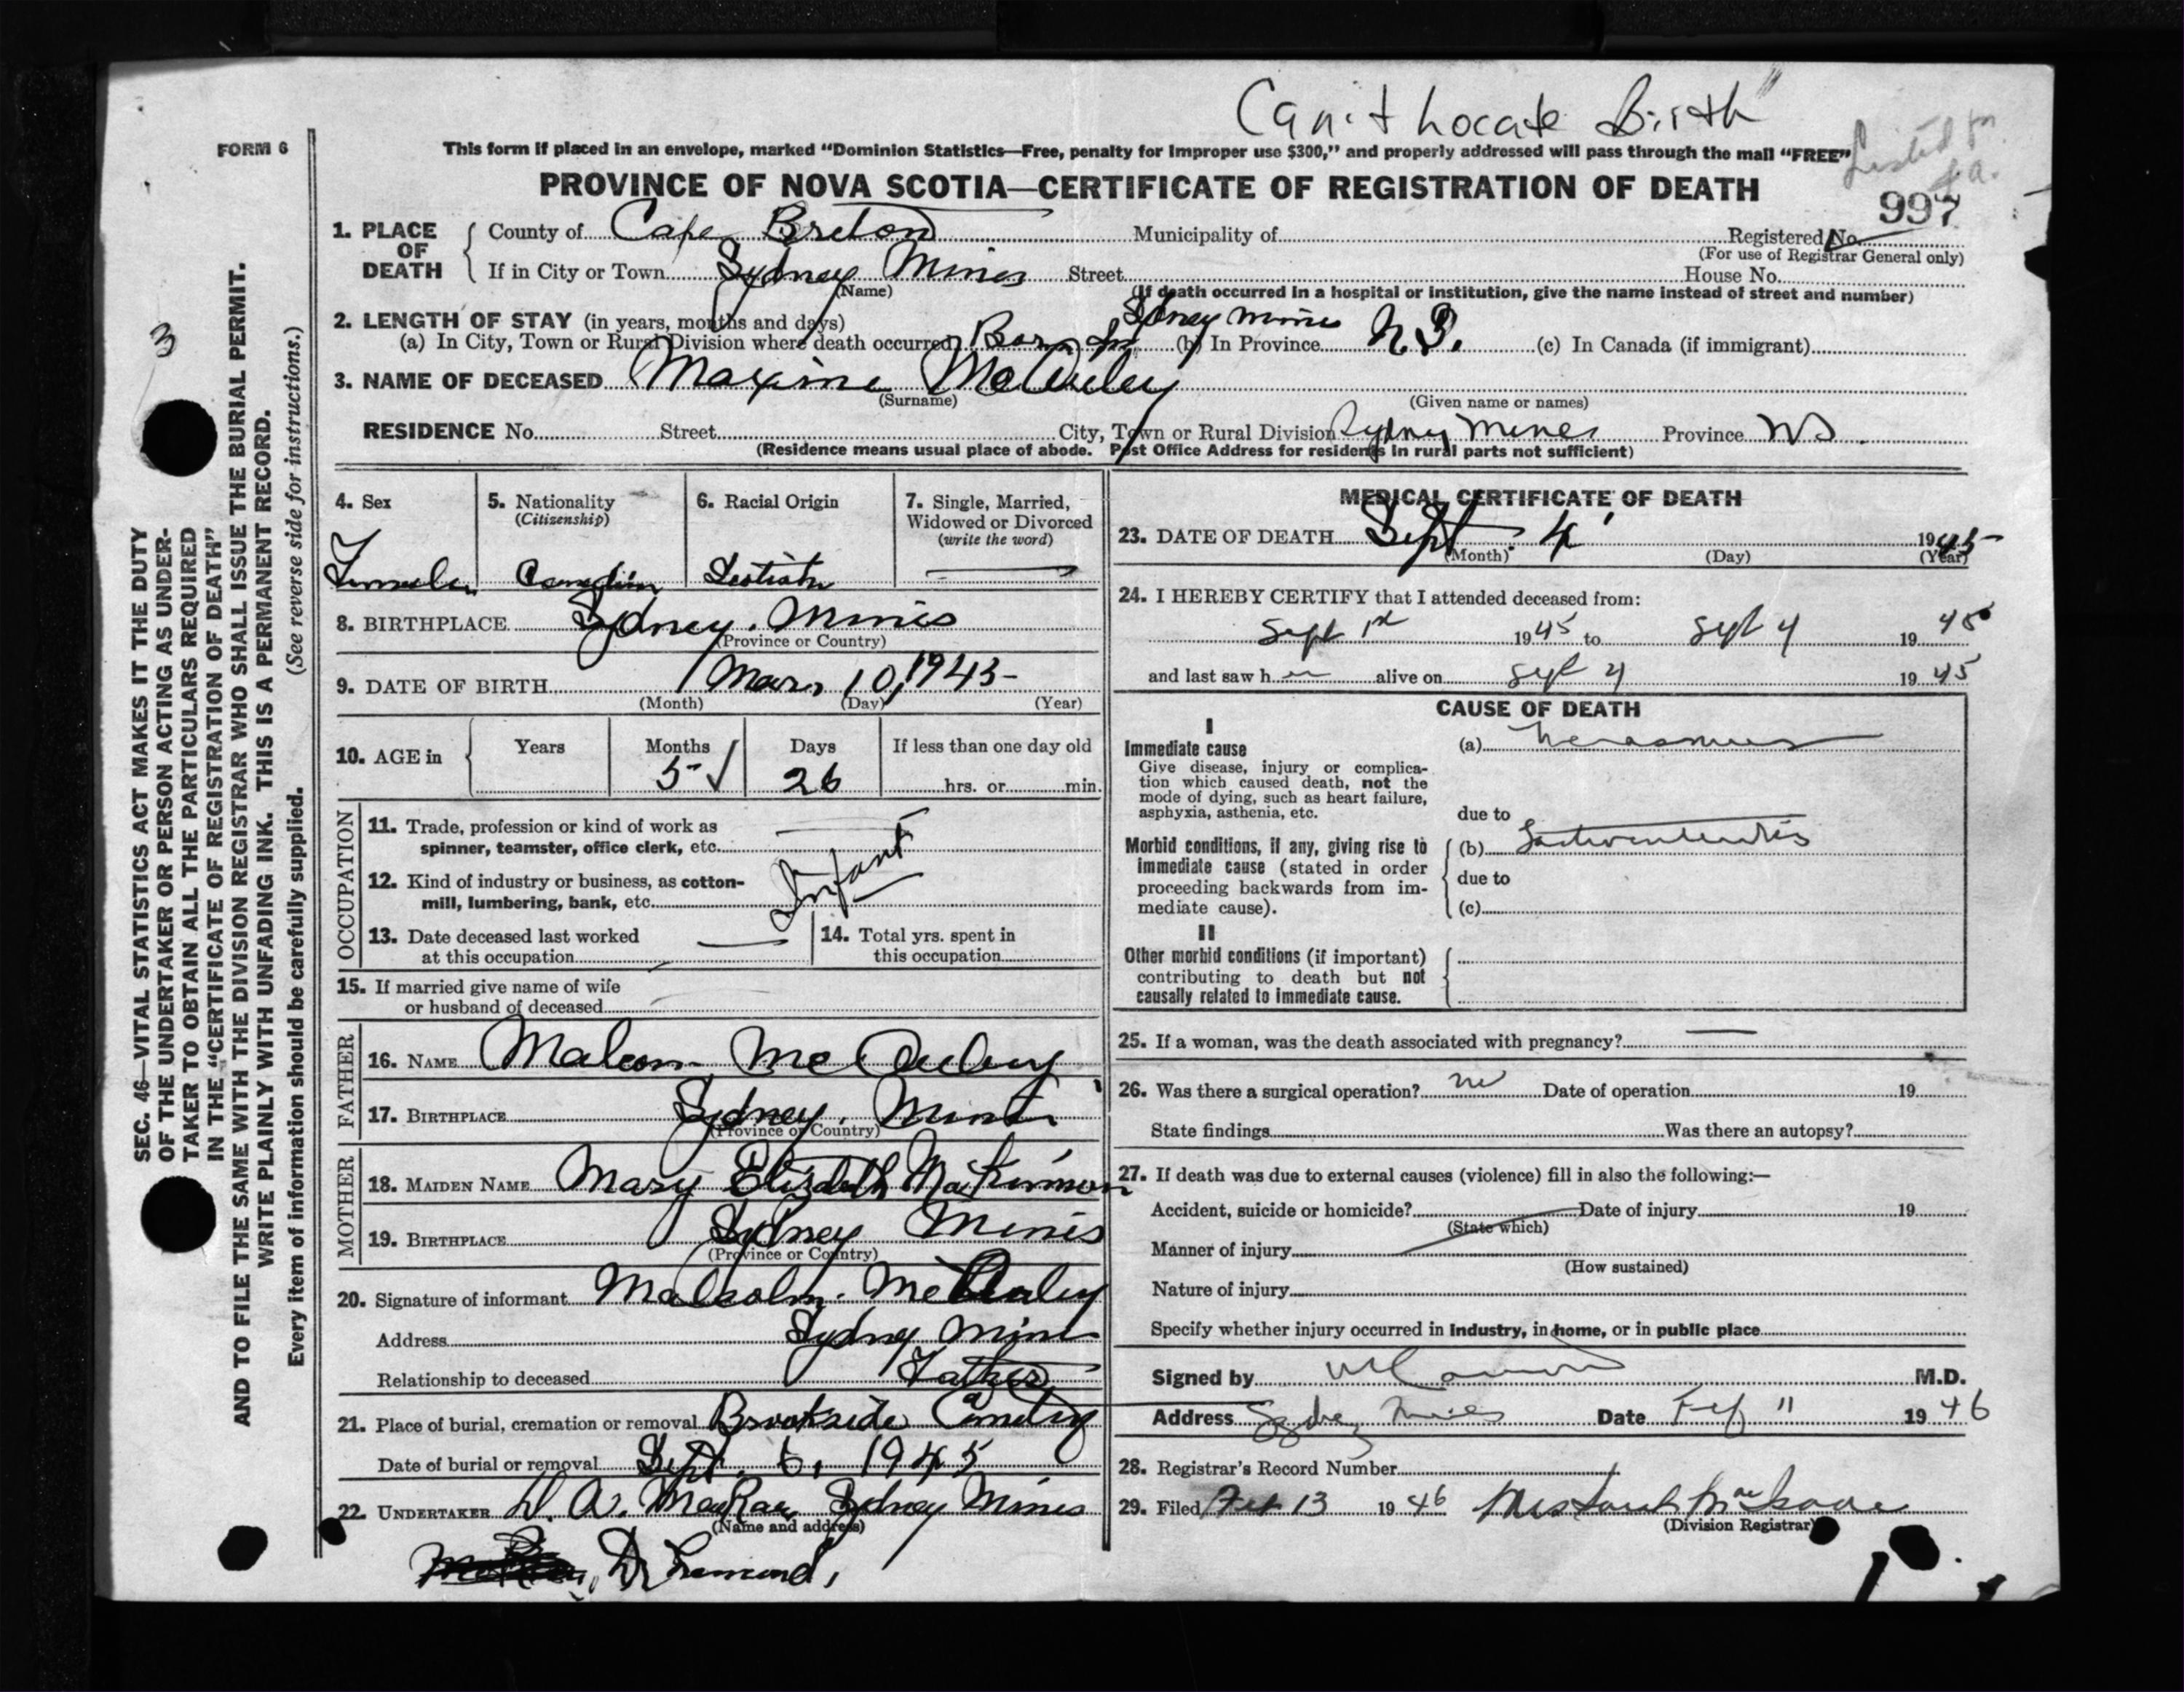 Can't Locate Birth"
FORM 6
This form if placed in an envelope, marked “Dominion Statistics—Free, penalty for improper use $300,” and properly addressed will pass through the mail “FREE”
Listed for
PROVINCE OF NOVA SCOTIA—CERTIFICATE OF REGISTRATION OF DEATH
997
1. PLACE OF DEATH
County of Cape Breton Municipality of Registered No.
(For use of Registrar General only)
If in City or Town Sydney Mines Street House No.
(Name) (If death occurred in a hospital or institution, give the name instead of street and number)
2. LENGTH OF STAY (in years, months and days)
(a) In City, Town or Rural Division where death occurred Born In Sydney Mines (b) In Province N.S. (c) In Canada (if immigrant)
3. NAME OF DECEASED Maxine McAuley
(Surname) (Given name or names)
RESIDENCE No. Street City, Town or Rural Division Sydney Mines Province NS.
(Residence means usual place of abode. Post Office Address for residents in rural parts not sufficient)
4. Sex
Female
5. Nationality
(Citizenship)
Canadian
6. Racial Origin
Scotish
7. Single, Married,
Widowed or Divorced
(write the word)
8. BIRTHPLACE Sydney. Mines
(Province or Country)
9. DATE OF BIRTH Mar. 10, 1945
(Month) (Day) (Year)
10. AGE in
Years Months Days If less than one day old
5 ✓ 26 hrs. or min.
OCCUPATION
11. Trade, profession or kind of work as
spinner, teamster, office clerk, etc.
Infant
12. Kind of industry or business, as cotton-
mill, lumbering, bank, etc.
13. Date deceased last worked
at this occupation
14. Total yrs. spent in
this occupation
15. If married give name of wife
or husband of deceased
FATHER
16. NAME Malcom McAuley
17. BIRTHPLACE Sydney. Mines
(Province or Country)
MOTHER
18. MAIDEN NAME Mary Elizabeth MacKinnon
19. BIRTHPLACE Sydney Mines
(Province or Country)
20. Signature of informant Malcolm. McAuley
Address Sydney Mines
Relationship to deceased Father
21. Place of burial, cremation or removal Brookside Cemetery
Date of burial or removal Sept. 6, 1945
22. UNDERTAKER D. A. MacRae Sydney Mines
(Name and address)
Dr
MEDICAL CERTIFICATE OF DEATH
23. DATE OF DEATH Sept 4 1945
(Month) (Day) (Year)
24. I HEREBY CERTIFY that I attended deceased from:
Sept 1st 1945 to Sept 4 1945
and last saw her alive on Sept 4 1945
CAUSE OF DEATH
I
Immediate cause
Give disease, injury or complica-
tion which caused death, not the
mode of dying, such as heart failure,
asphyxia, asthenia, etc.
(a) Marasmus
due to
Morbid conditions, if any, giving rise to
immediate cause (stated in order
proceeding backwards from im-
mediate cause).
(b)
due to
(c)
II
Other morbid conditions (if important)
contributing to death but not
causally related to immediate cause.
25. If a woman, was the death associated with pregnancy?
26. Was there a surgical operation? no Date of operation 19
State findings Was there an autopsy?
27. If death was due to external causes (violence) fill in also the following:—
Accident, suicide or homicide? Date of injury 19
(State which)
Manner of injury
(How sustained)
Nature of injury
Specify whether injury occurred in industry, in home, or in public place
Signed by M.D.
Address Sydney Mines Date Feb 11 1946
28. Registrar's Record Number
29. Filed Feb 13 1946
(Division Registrar)
SEC. 46—VITAL STATISTICS ACT MAKES IT THE DUTY
OF THE UNDERTAKER OR PERSON ACTING AS UNDER-
TAKER TO OBTAIN ALL THE PARTICULARS REQUIRED
IN THE “CERTIFICATE OF REGISTRATION OF DEATH”
AND TO FILE THE SAME WITH THE DIVISION REGISTRAR WHO SHALL ISSUE THE BURIAL PERMIT.
WRITE PLAINLY WITH UNFADING INK. THIS IS A PERMANENT RECORD.
Every item of information should be carefully supplied. (See reverse side for instructions.)
3